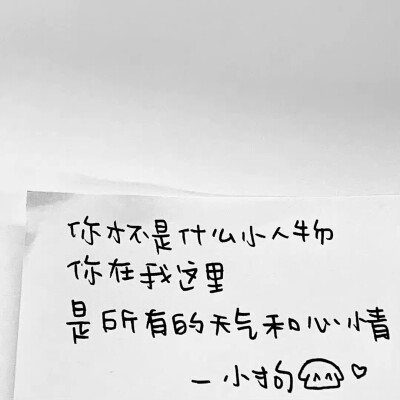 你才不是什么小人物
你在我这里
是所有的天气和心情
一小拘